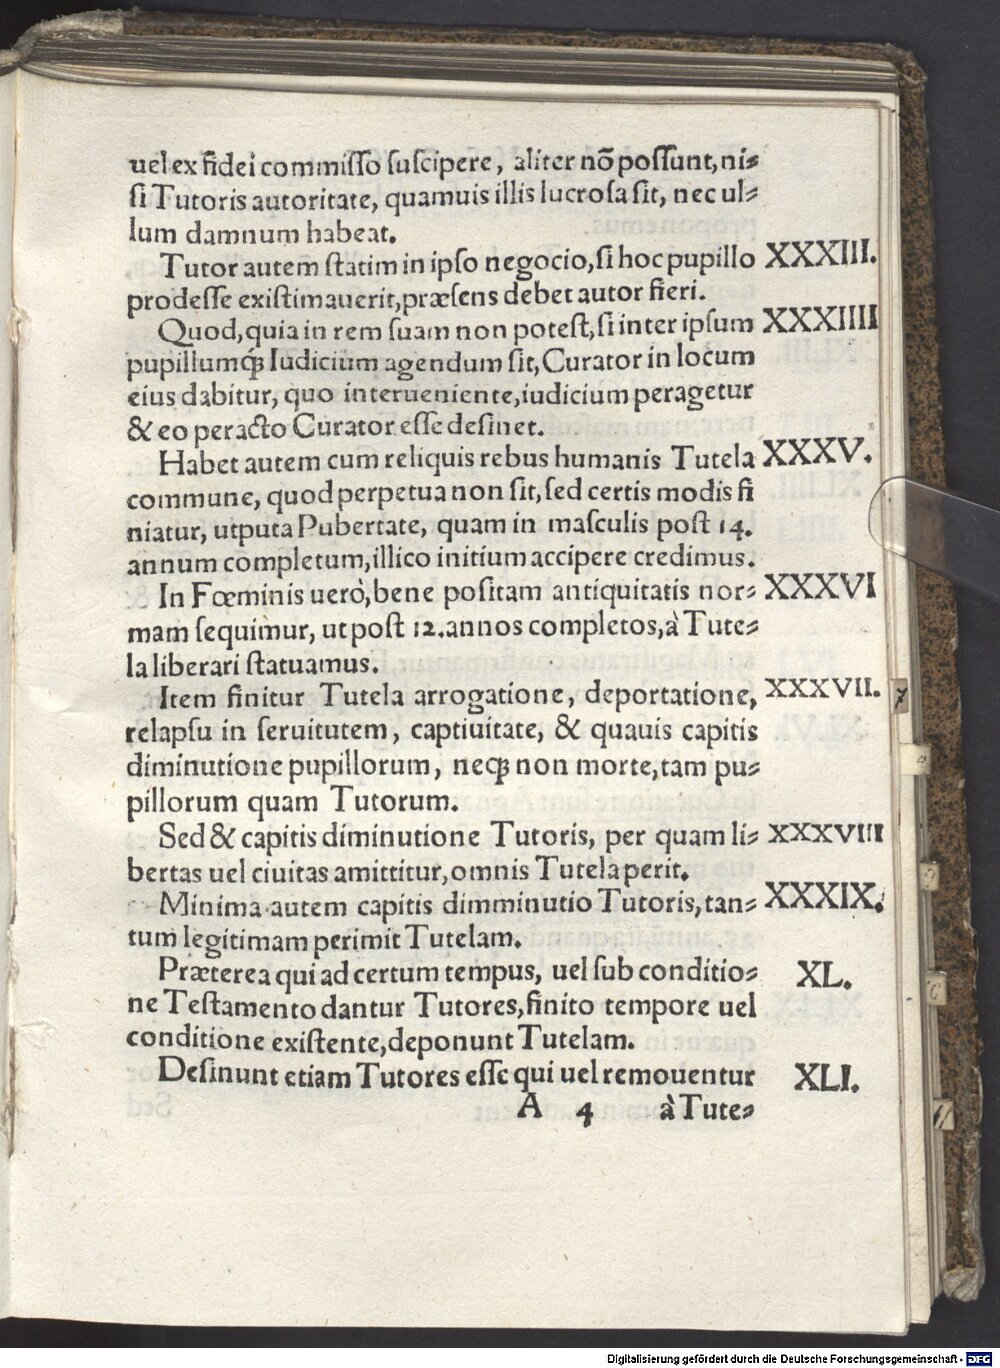 uel ex fidei commiſſo ſuſcipere, aliter nõ poſſunt, ni⸗
ſi Tutoris autoritate, quamuis illis lucroſa ſit, nec ul⸗
lum damnum habeat.
Tutor autem ſtatim in ipſo negocio, ſi hoc pupillo XXXIII.
prodeſſe exiſtimauerit, præſens debet autor fieri.
Quod, quia in rem ſuam non poteſt, ſi inter ipſum XXXIIII
pupillumq́ꝫ Iudicium agendum ſit, Curator in locum
eius dabitur, quo interueniente, iudicium peragetur
& eo peracto Curator eſſe deſinet.
Habet autem cum reliquis rebus humanis Tutela XXXV.
commune, quod perpetua non ſit, ſed certis modis fi
niatur, utputa Pubertate, quam in maſculis poſt 14.
annum completum, illico initium accipere credimus.
In Fœminis uerò, bene poſitam antiquitatis nor⸗ XXXVI
mam ſequimur, ut poſt 12. annos completos, à Tute⸗
la liberari ſtatuamus.
Item finitur Tutela arrogatione, deportatione, XXXVII.
relapſu in ſeruitutem, captiuitate, & quauis capitis
diminutione pupillorum, neqꝫ non morte, tam pu⸗
pillorum quam Tutorum.
Sed & capitis diminutione Tutoris, per quam li⸗ XXXVIII
bertas uel ciuitas amittitur, omnis Tutela perit.
Minima autem capitis dimminutio Tutoris, tan⸗ XXXIX.
tum legitimam perimit Tutelam.
Præterea qui ad certum tempus, uel ſub conditio⸗ XL.
ne Teſtamento dantur Tutores, finito tempore uel
conditione exiſtente, deponunt Tutelam.
Deſinunt etiam Tutores eſſe qui uel remouentur XLI.
A 4 à Tute⸗
Digitalisierung gefördert durch die Deutsche Forschungsgemeinschaft - DFG